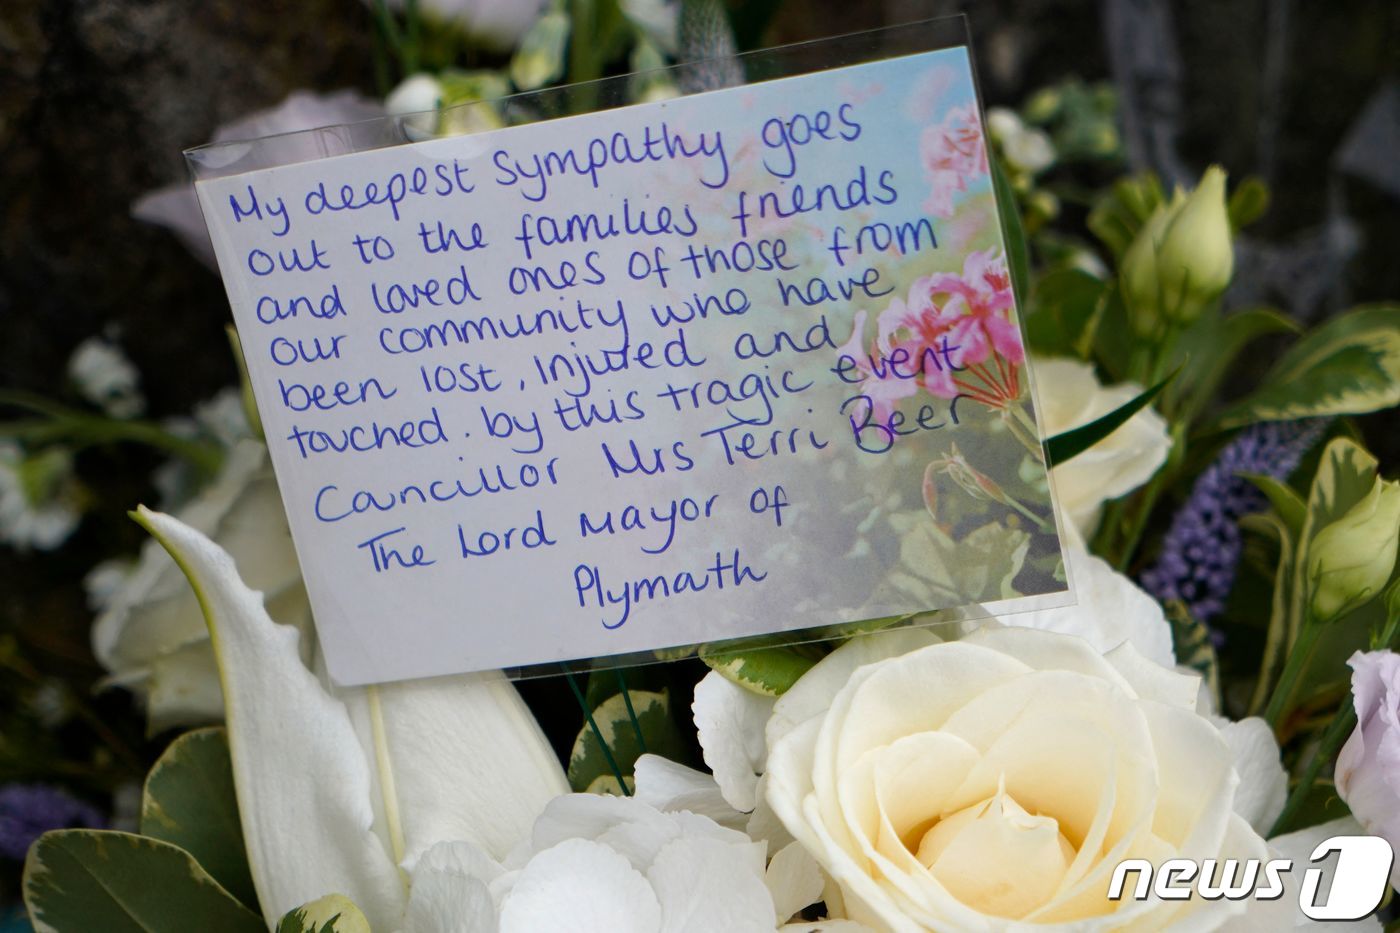 My deepest sympathy goes
out to the families friends
and loved ones of those from
our community who have
been lost, injured and
touched. by this tragic event
Councillor Mrs Terri Beer
The Lord Mayor of
Plymouth
news1